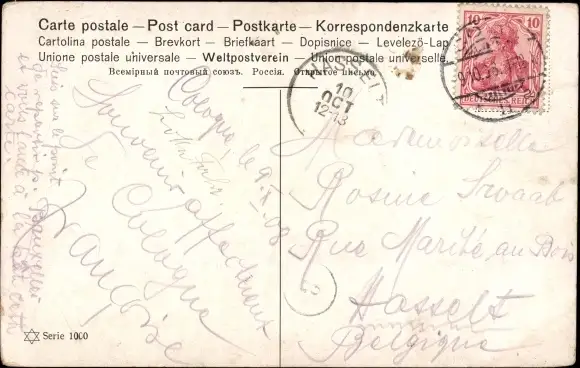 Carte postale — Post card — Postkarte — Korrespondenzkarte
Cartolina postale — Brevkort — Briefkaart — Dopisnice — Levelező-Lap
Unione postale universale — Weltpostverein — Union postale universelle.
Всемірный почтовый союзъ. Россія. Открытое письмо.
10 10
DEUTSCHES REICH
HASSELT
10
OCT
12-13
Cologne, le 9. X. 08
Souvenir affectueux
de Cologne
Françoise
Mademoiselle
Rosine Swaab
Rue Marité au Bois
Hasselt
Belgique
Suis sur le point
de repartir
Bruxelles
et vous
à la
carte
Serie 1000